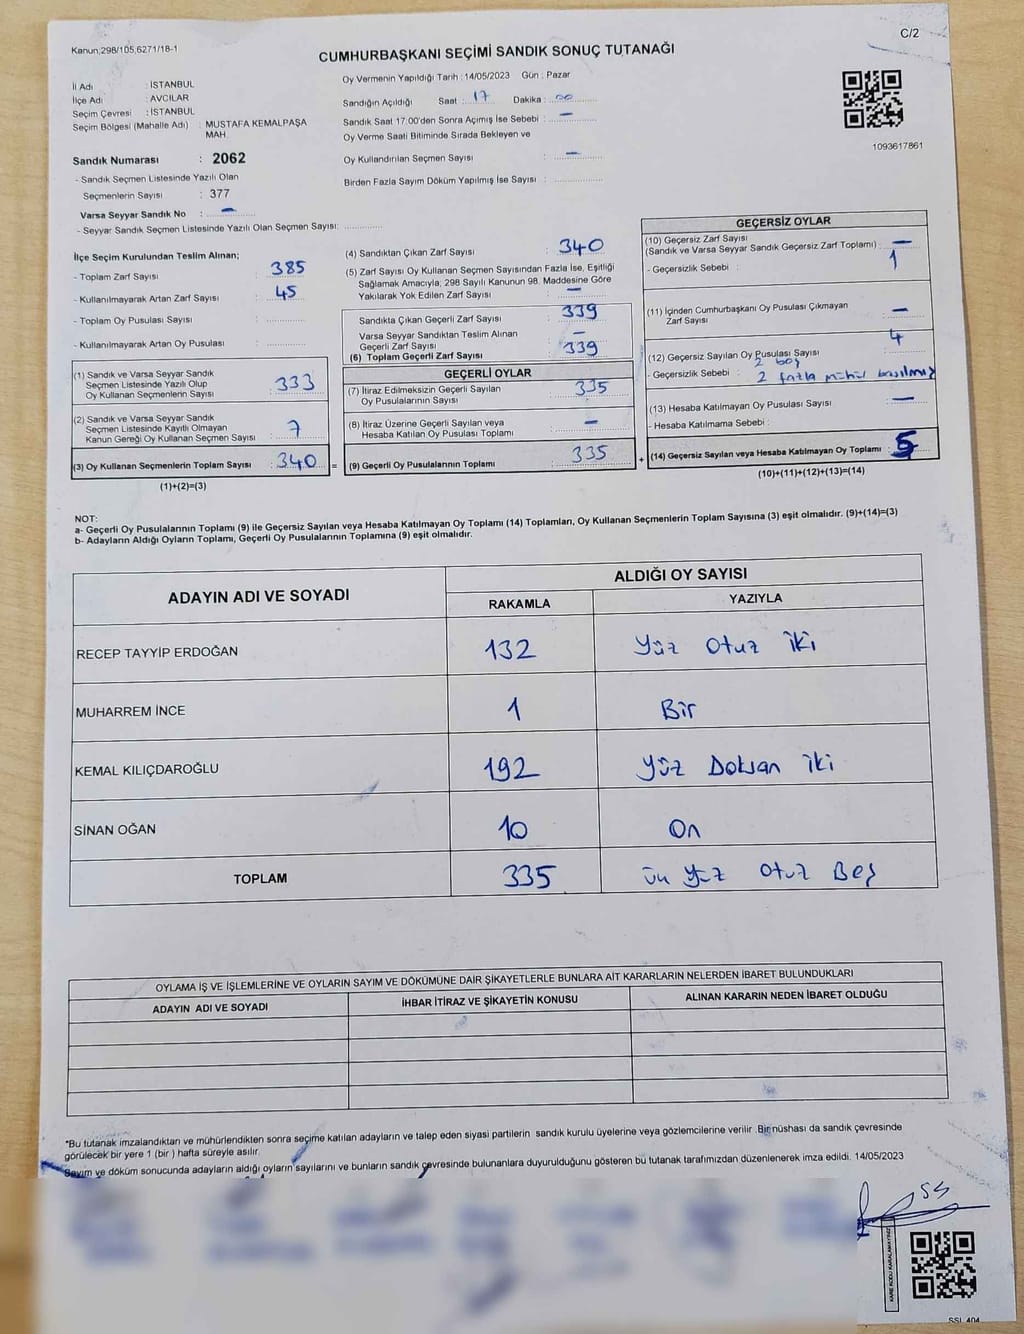 Kanun;298/105,6271/18-1
C/2
CUMHURBAŞKANI SEÇİMİ SANDIK SONUÇ TUTANAĞI
İl Adı : İSTANBUL
İlçe Adı : AVCILAR
Seçim Çevresi : İSTANBUL
Seçim Bölgesi (Mahalle Adı) : MUSTAFA KEMALPAŞA MAH.
Sandık Numarası : 2062
- Sandık Seçmen Listesinde Yazılı Olan
Seçmenlerin Sayısı : 377
Varsa Seyyar Sandık No : –
- Seyyar Sandık Seçmen Listesinde Yazılı Olan Seçmen Sayısı:
Oy Vermenin Yapıldığı Tarih : 14/05/2023 Gün : Pazar
Sandığın Açıldığı Saat : 17 Dakika : 00
Sandık Saat 17.00'den Sonra Açımış İse Sebebi : –
Oy Verme Saati Bitiminde Sırada Bekleyen ve
Oy Kullandırılan Seçmen Sayısı : –
Birden Fazla Sayım Döküm Yapılmış İse Sayısı :
1093617861
İlçe Seçim Kurulundan Teslim Alınan;
- Toplam Zarf Sayısı : 385
- Kullanılmayarak Artan Zarf Sayısı : 45
- Toplam Oy Pusulası Sayısı :
- Kullanılmayarak Artan Oy Pusulası :
(1) Sandık ve Varsa Seyyar Sandık
Seçmen Listesinde Yazılı Olup
Oy Kullanan Seçmenlerin Sayısı : 333
(2) Sandık ve Varsa Seyyar Sandık
Seçmen Listesinde Kayıtlı Olmayan
Kanun Gereği Oy Kullanan Seçmen Sayısı : 7
(3) Oy Kullanan Seçmenlerin Toplam Sayısı : 340 =
(1)+(2)=(3)
(4) Sandıktan Çıkan Zarf Sayısı : 340
(5) Zarf Sayısı Oy Kullanan Seçmen Sayısından Fazla İse, Eşitliği
Sağlamak Amacıyla; 298 Sayılı Kanunun 98. Maddesine Göre
Yakılarak Yok Edilen Zarf Sayısı : –
Sandıkta Çıkan Geçerli Zarf Sayısı : 339
Varsa Seyyar Sandıktan Teslim Alınan
Geçerli Zarf Sayısı : –
(6) Toplam Geçerli Zarf Sayısı : 339
GEÇERLİ OYLAR
(7) İtiraz Edilmeksizin Geçerli Sayılan
Oy Pusulalarının Sayısı : 335
(8) İtiraz Üzerine Geçerli Sayılan veya
Hesaba Katılan Oy Pusulası Toplamı : –
(9) Geçerli Oy Pusulalarının Toplamı : 335 +
GEÇERSİZ OYLAR
(10) Geçersiz Zarf Sayısı
(Sandık ve Varsa Seyyar Sandık Geçersiz Zarf Toplamı) : –
- Geçersizlik Sebebi : 1
(11) İçinden Cumhurbaşkanı Oy Pusulası Çıkmayan
Zarf Sayısı : –
(12) Geçersiz Sayılan Oy Pusulası Sayısı : 4
2 boş
- Geçersizlik Sebebi : 2 fazla mühür basılmış
(13) Hesaba Katılmayan Oy Pusulası Sayısı : –
- Hesaba Katılmama Sebebi :
(14) Geçersiz Sayılan veya Hesaba Katılmayan Oy Toplamı : 5
(10)+(11)+(12)+(13)=(14)
NOT:
a- Geçerli Oy Pusulalarının Toplamı (9) ile Geçersiz Sayılan veya Hesaba Katılmayan Oy Toplamı (14) Toplamları, Oy Kullanan Seçmenlerin Toplam Sayısına (3) eşit olmalıdır. (9)+(14)=(3)
b- Adayların Aldığı Oyların Toplamı, Geçerli Oy Pusulalarının Toplamına (9) eşit olmalıdır.
ADAYIN ADI VE SOYADI
ALDIĞI OY SAYISI
RAKAMLA YAZIYLA
RECEP TAYYİP ERDOĞAN 132 Yüz Otuz İki
MUHARREM İNCE 1 Bir
KEMAL KILIÇDAROĞLU 192 Yüz Doksan iki
SİNAN OĞAN 10 On
TOPLAM 335 üç Yüz Otuz Beş
OYLAMA İŞ VE İŞLEMLERİNE VE OYLARIN SAYIM VE DÖKÜMÜNE DAİR ŞİKAYETLERLE BUNLARA AİT KARARLARIN NELERDEN İBARET BULUNDUKLARI
ADAYIN ADI VE SOYADI İHBAR İTİRAZ VE ŞİKAYETİN KONUSU ALINAN KARARIN NEDEN İBARET OLDUĞU
*Bu tutanak imzalandıktan ve mühürlendikten sonra seçime katılan adayların ve talep eden siyasi partilerin sandık kurulu üyelerine veya gözlemcilerine verilir. Bir nüshası da sandık çevresinde
görülecek bir yere 1 (bir ) hafta süreyle asılır.
Sayım ve döküm sonucunda adayların aldığı oyların sayılarını ve bunların sandık çevresinde bulunanlara duyurulduğunu gösteren bu tutanak tarafımızdan düzenlenerek imza edildi. 14/05/2023
KARE KODU KARALAMAYINIZ
SSL 404